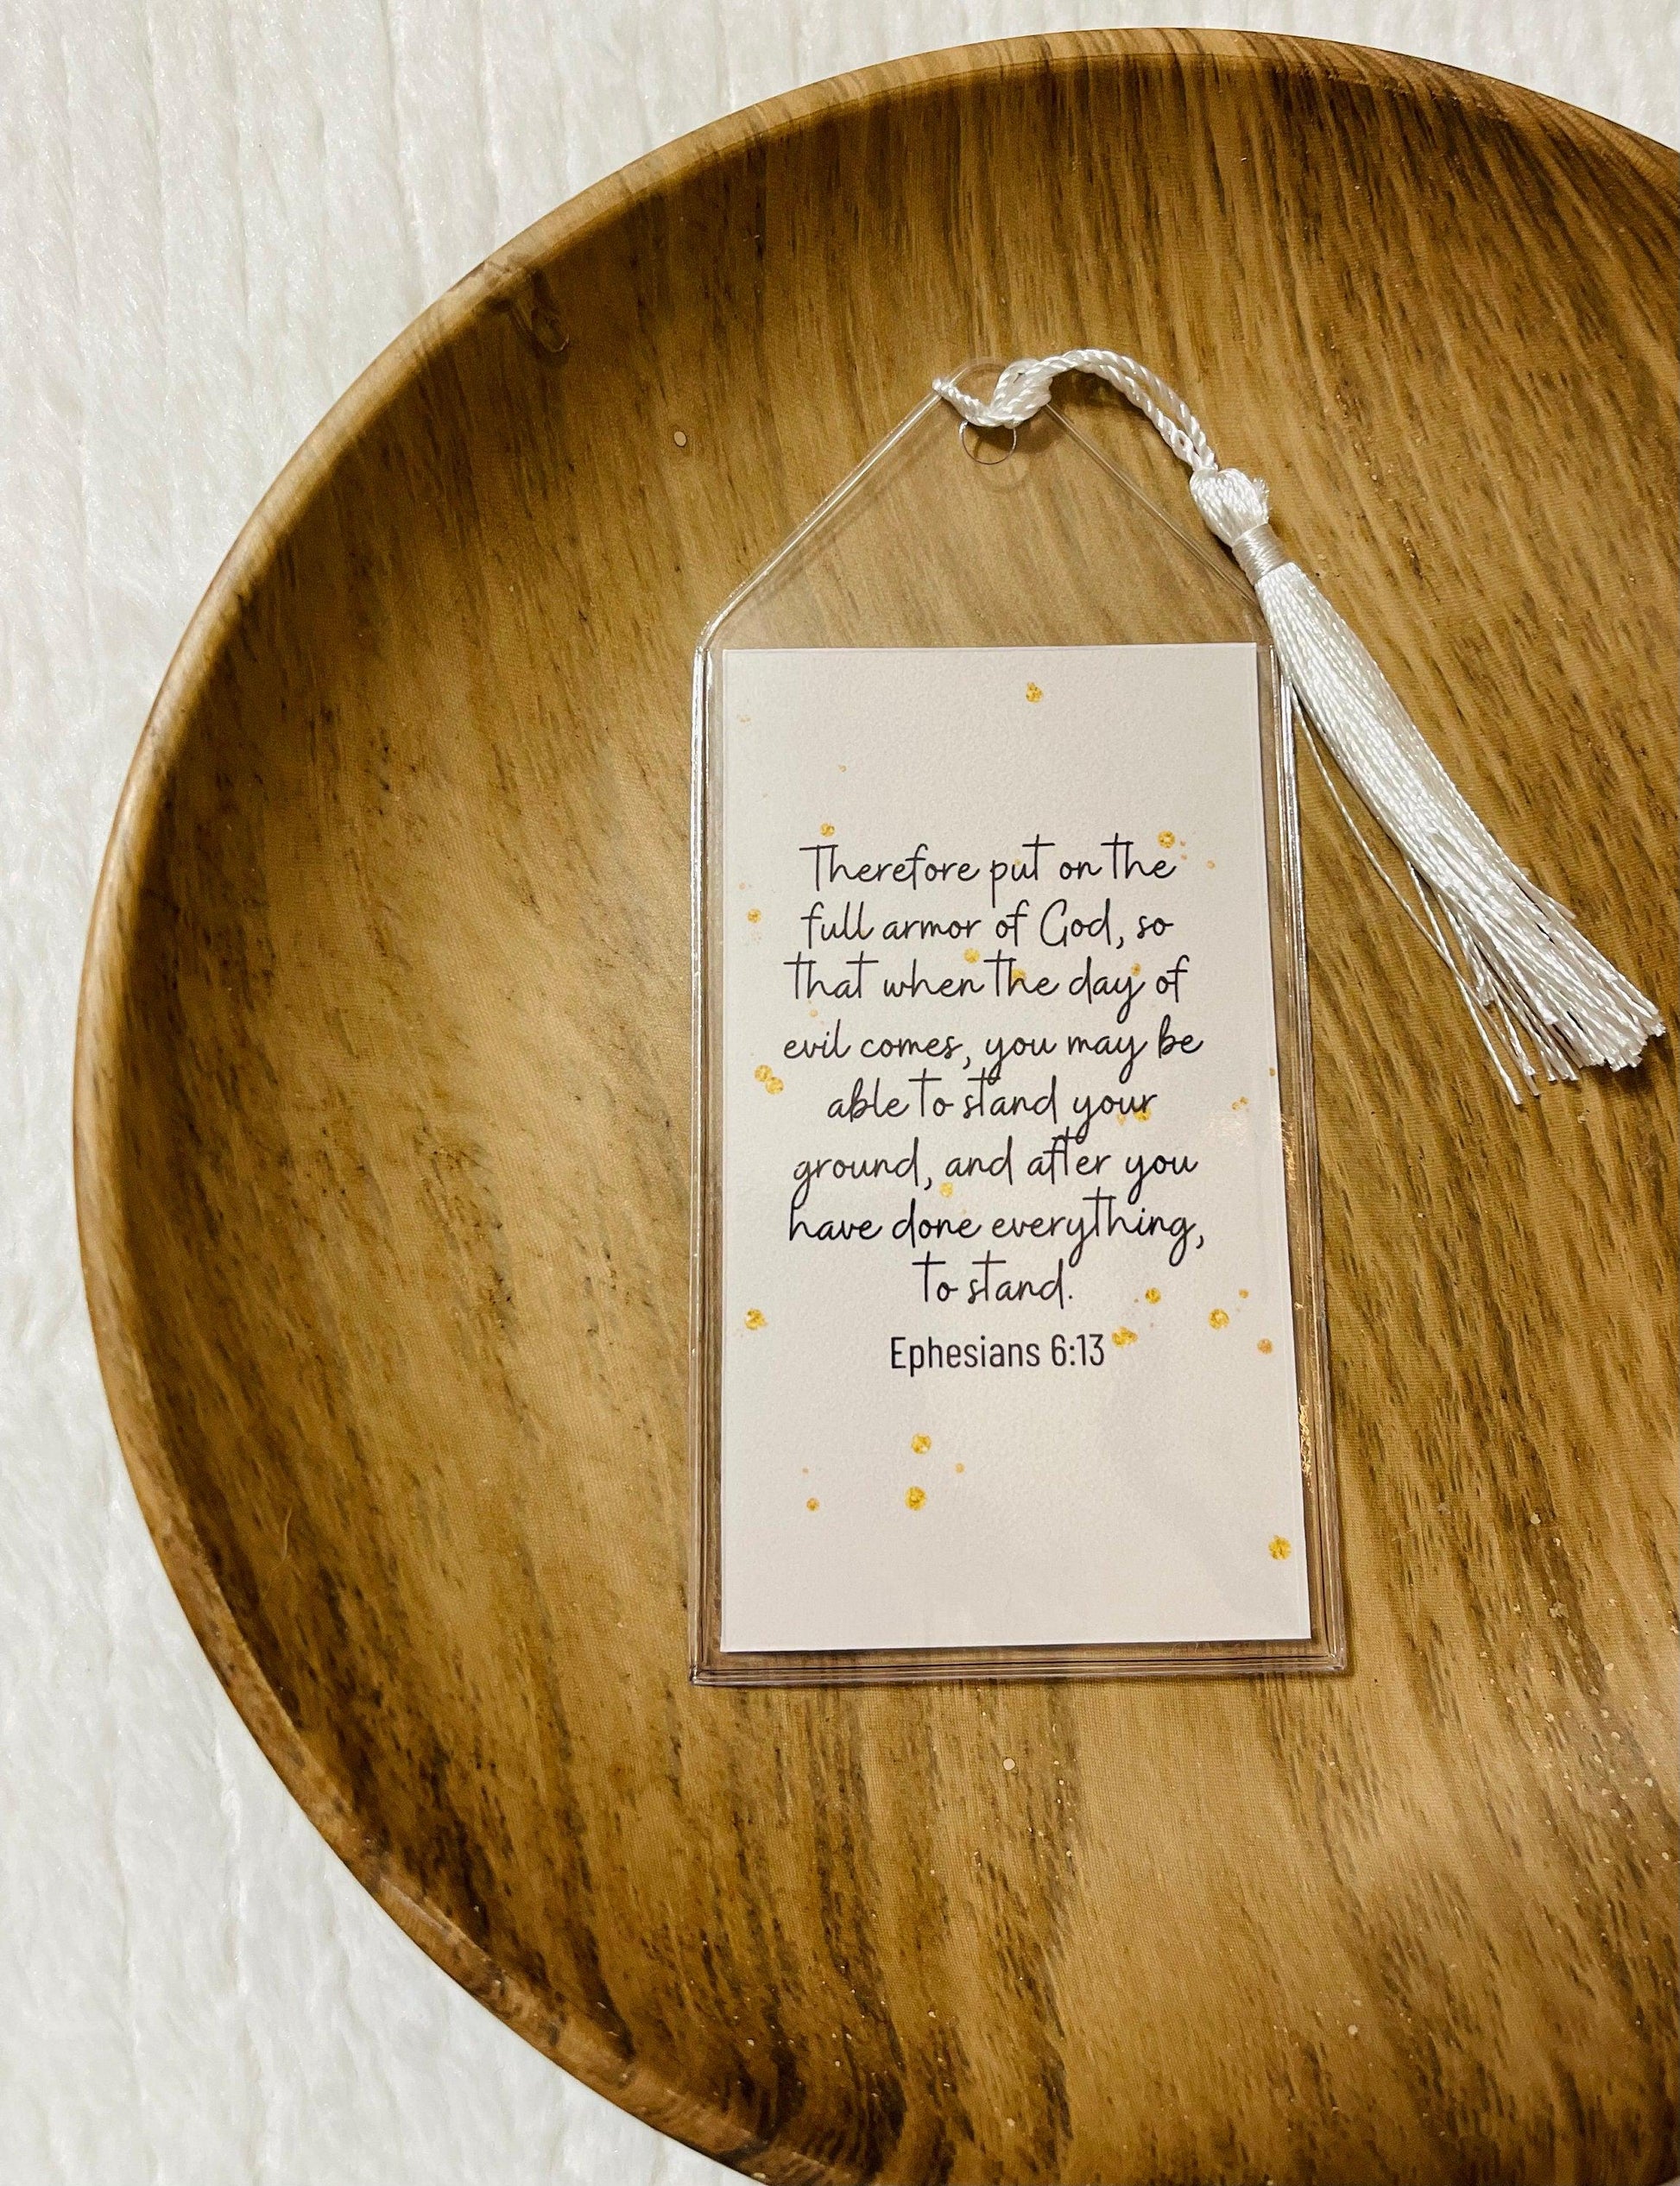 Therefore put on the
full armor of God, so
that when the day of
evil comes, you may be
able to stand your
ground, and after you
have done everything,
to stand.
Ephesians 6:13